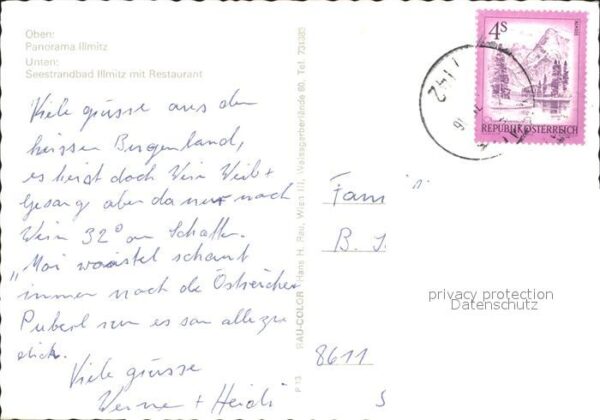 Oben:
Panorama Illmitz
Unten:
Seestrandbad Illmitz mit Restaurant
Viele grüsse aus dem
heissen Burgenland,
es heist doch Wein Weib +
Gesang aber da nur noch
Wein 32° im Schatten.
"Moi schaut
immer noch die Östreicher
Puberl nur es san alle zu
dick.
Viele grüsse
Werner + Heidi
P 13 RAU-COLOR Hans H. Rau, Wien III, Weissgerberlände 60, Tel. 731385
4S
REPUBLIK ÖSTERREICH
7142
Fam
B. J.
privacy protection
Datenschutz
8611
S